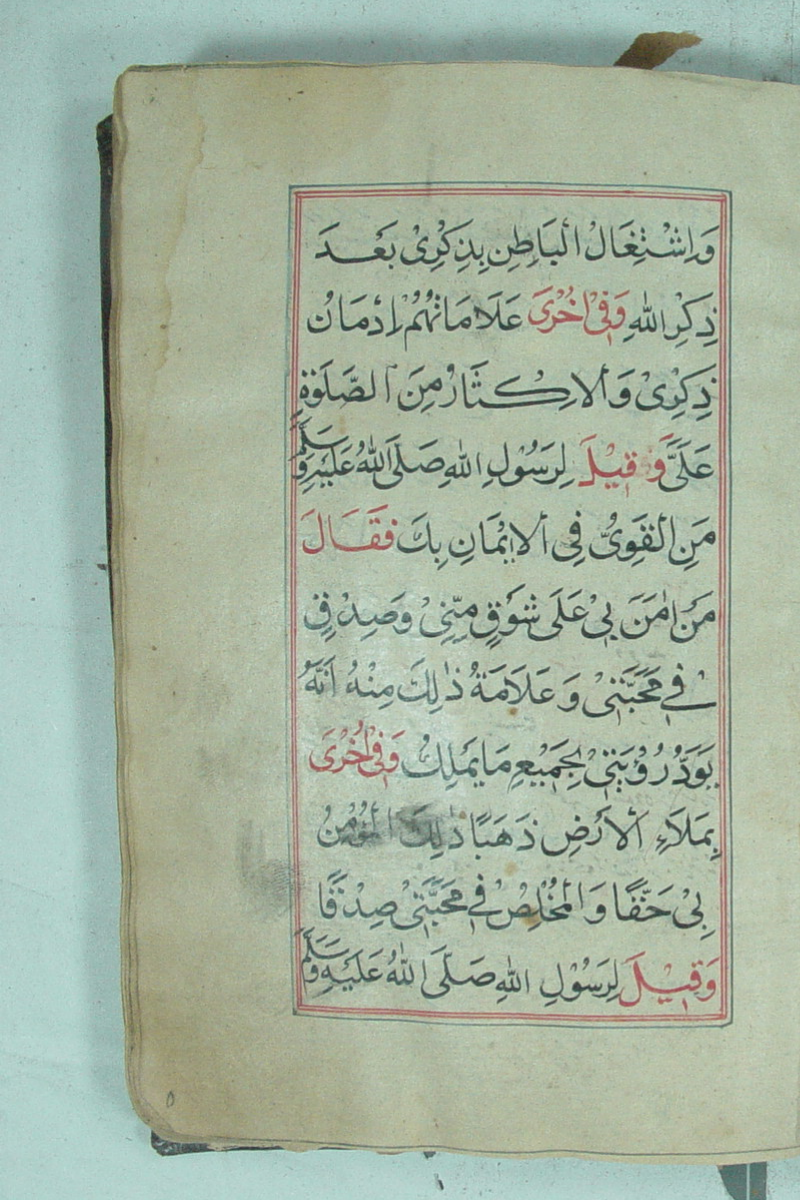 وَاِشْتِغَالُ الْبَاطِنِ بِذِكْرِىْ بَعْدَ
ذِكْرِ اللهِ وَفِىْ اُخْرٰى عَلَامَاتُهُمْ اِدْمَانُ
ذِكْرِىْ وَالْاِكْثَارُ مِنَ الصَّلٰوةِ
عَلَىَّ وَقِيْلَ لِرَسُوْلِ اللهِ صَلَّى اللهُ عَلَيْهِ وَسَلَّمَ
مَنِ الْقَوِىُّ فِى الْاِيْمَانِ بِكَ فَقَالَ
مَنْ اٰمَنَ بِىْ عَلٰى شَوْقٍ مِّنِّىْ وَصِدْقٍ
فِىْ مَحَبَّتِىْ وَعَلَامَةُ ذٰلِكَ مِنْهُ اَنَّهُ
يَوَدُّ رُؤْيَتِىْ بِجَمِيْعِ مَا يَمْلِكُ وَفِىْ اُخْرٰى
بِمَلَاءِ الْاَرْضِ ذَهَبًا ذٰلِكَ الْمُؤْمِنُ
بِىْ حَقًّا وَالْمُخْلِصُ فِىْ مَحَبَّتِىْ صِدْقًا
وَقِيْلَ لِرَسُوْلِ اللهِ صَلَّى اللهُ عَلَيْهِ وَسَلَّمَ
٥